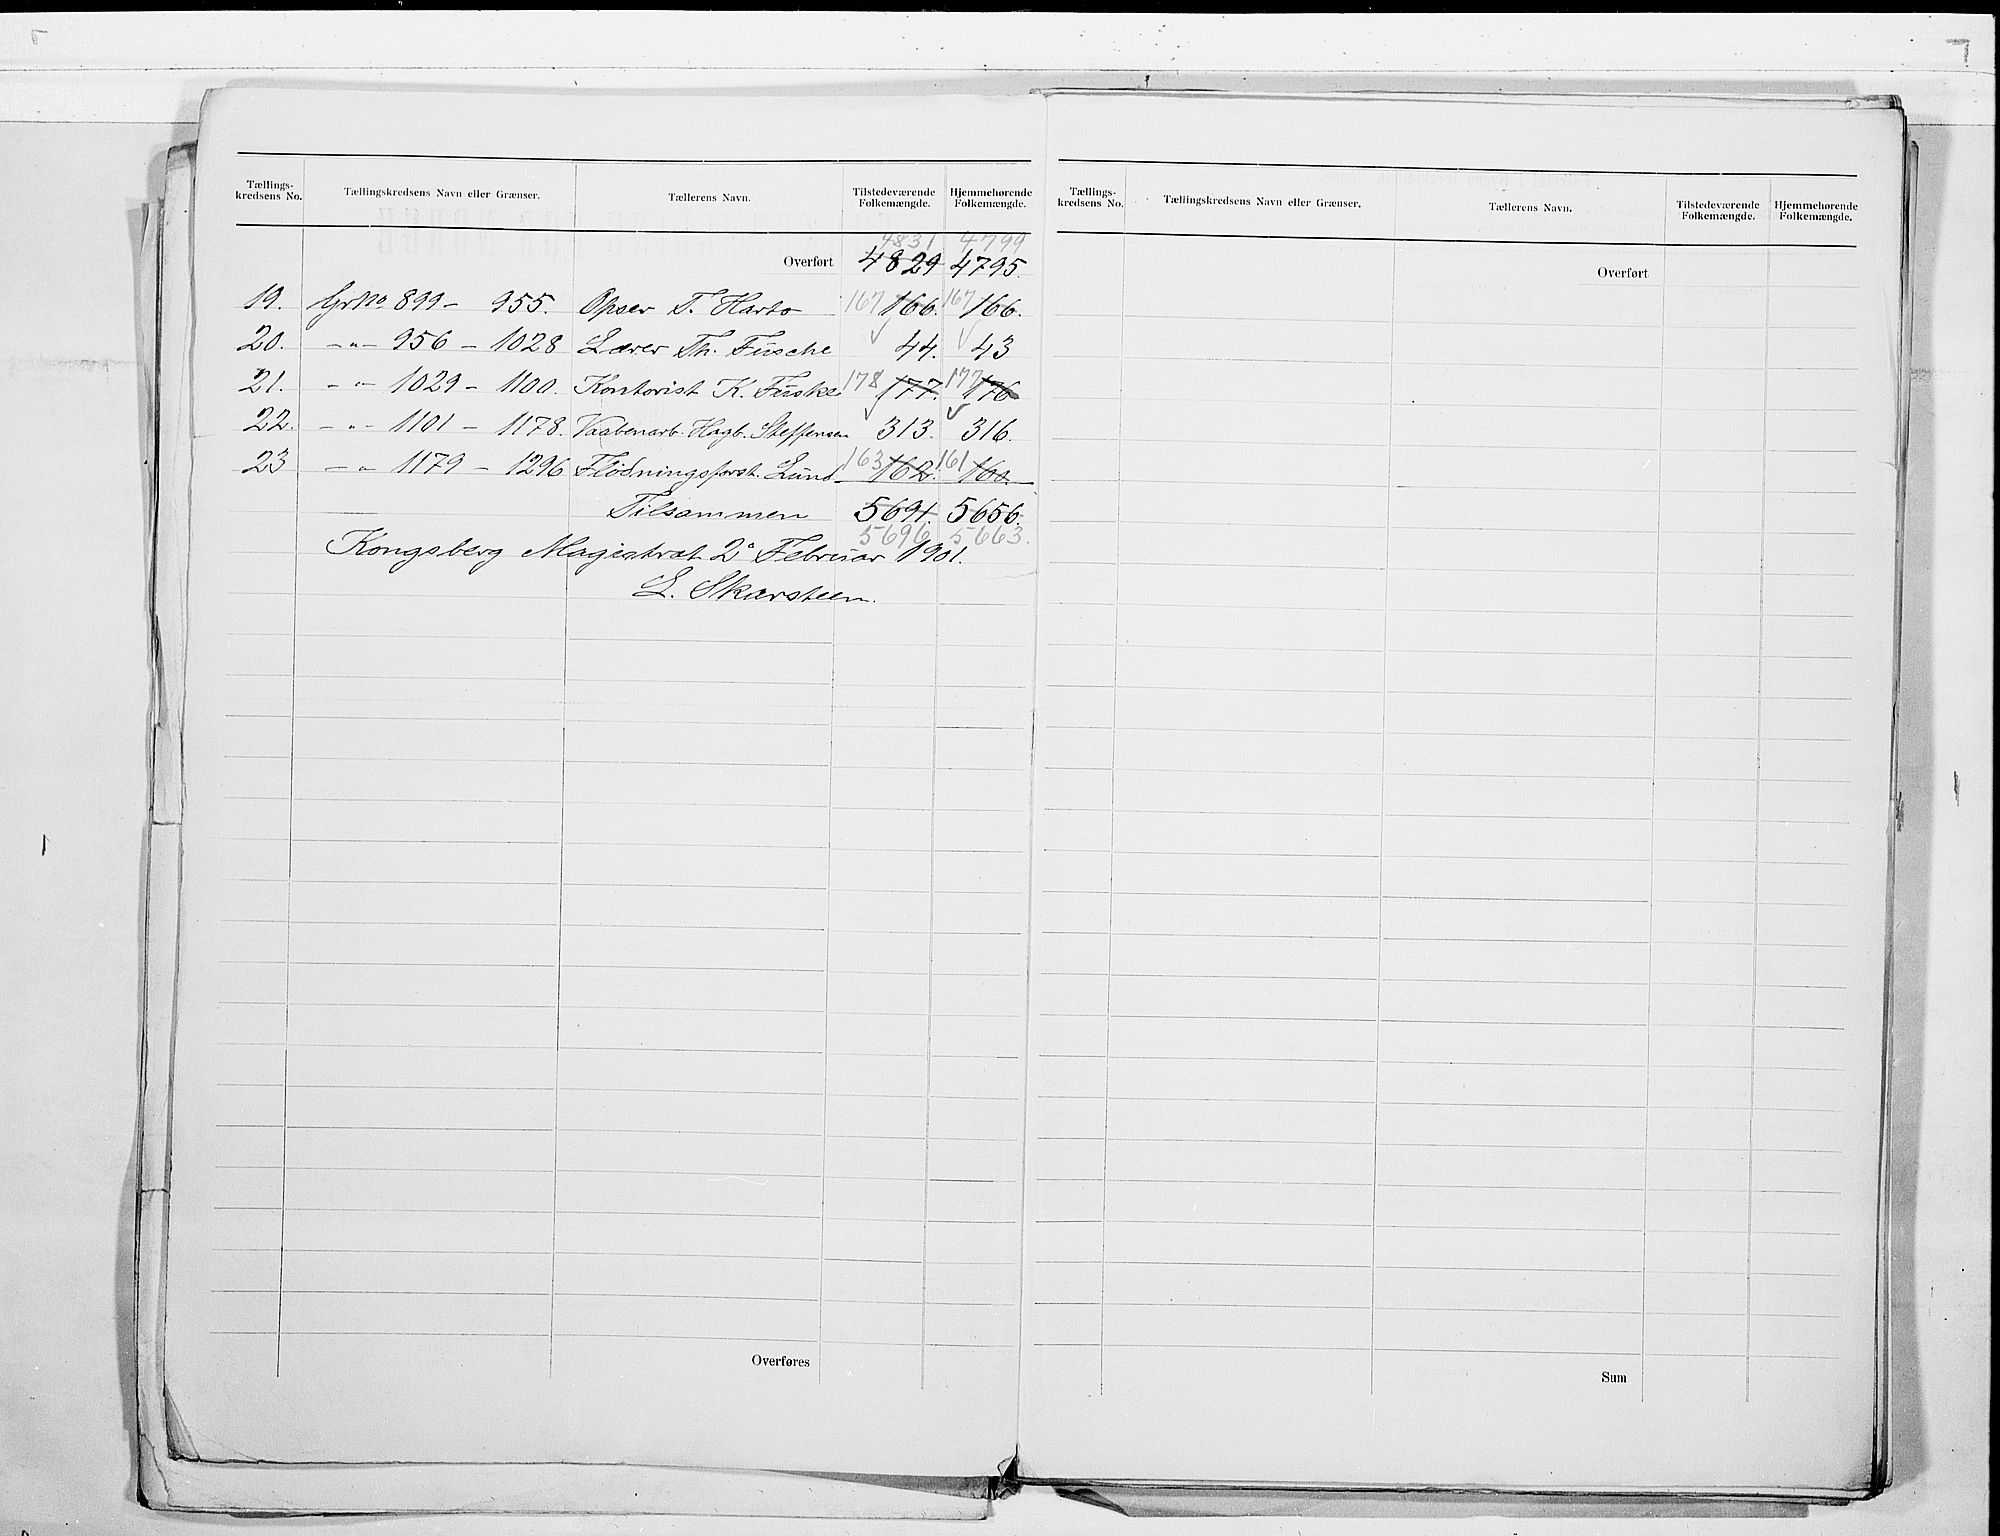 Tællings-
kredsens No.
Tællingskredsens Navn eller Grænser.
Tællerens Navn.
Tilstedeværende
Folkemængde.
Hjemmehørende
Folkemængde.
4831 4799
Overført 4829 4795.
19. GrNo 899 - 955. Opser T. Harto 167 166. 167 166.
20. -"- 956 - 1028 Lærer Th. Fusche 44. 43
21. -"- 1029 - 1100. Kontorist K. Fuske 178 177. 177 176
22. -"- 1101 - 1178. Vaabenarb. Hagb. Steffensen 313. 316.
23 -"- 1179 - 1296 Flødningsforst. Lund 163 162. 161 160.
Tilsammen 5691. 5656.
5696 5663.
Kongsberg Magistrat 2 Februar 1901.
L. Skarsteen.
Overføres
Tællings-
kredsens No.
Tællingskredsens Navn eller Grænser.
Tællerens Navn.
Tilstedeværende
Folkemængde.
Hjemmehørende
Folkemængde.
Overført
Sum